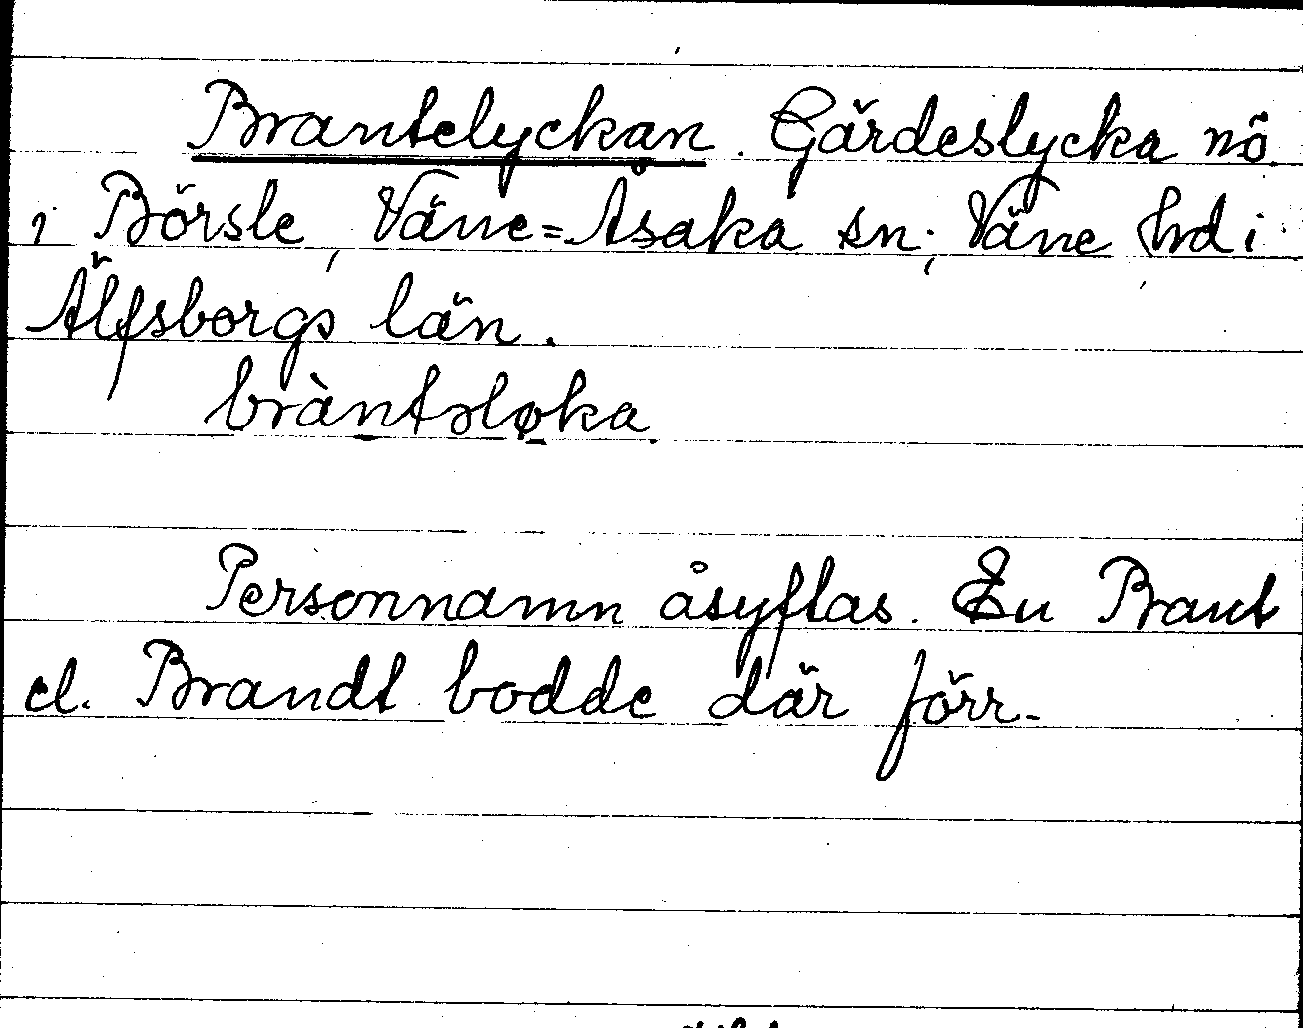 Brantelyckan. Gärdeslycka nö.
i Börsle, Väne=Åsaka sn; Väne hd i
Älfsborgs län.
bràntsløka.
Personnamn åsyftas. En Brant
el. Brandt bodde där förr.